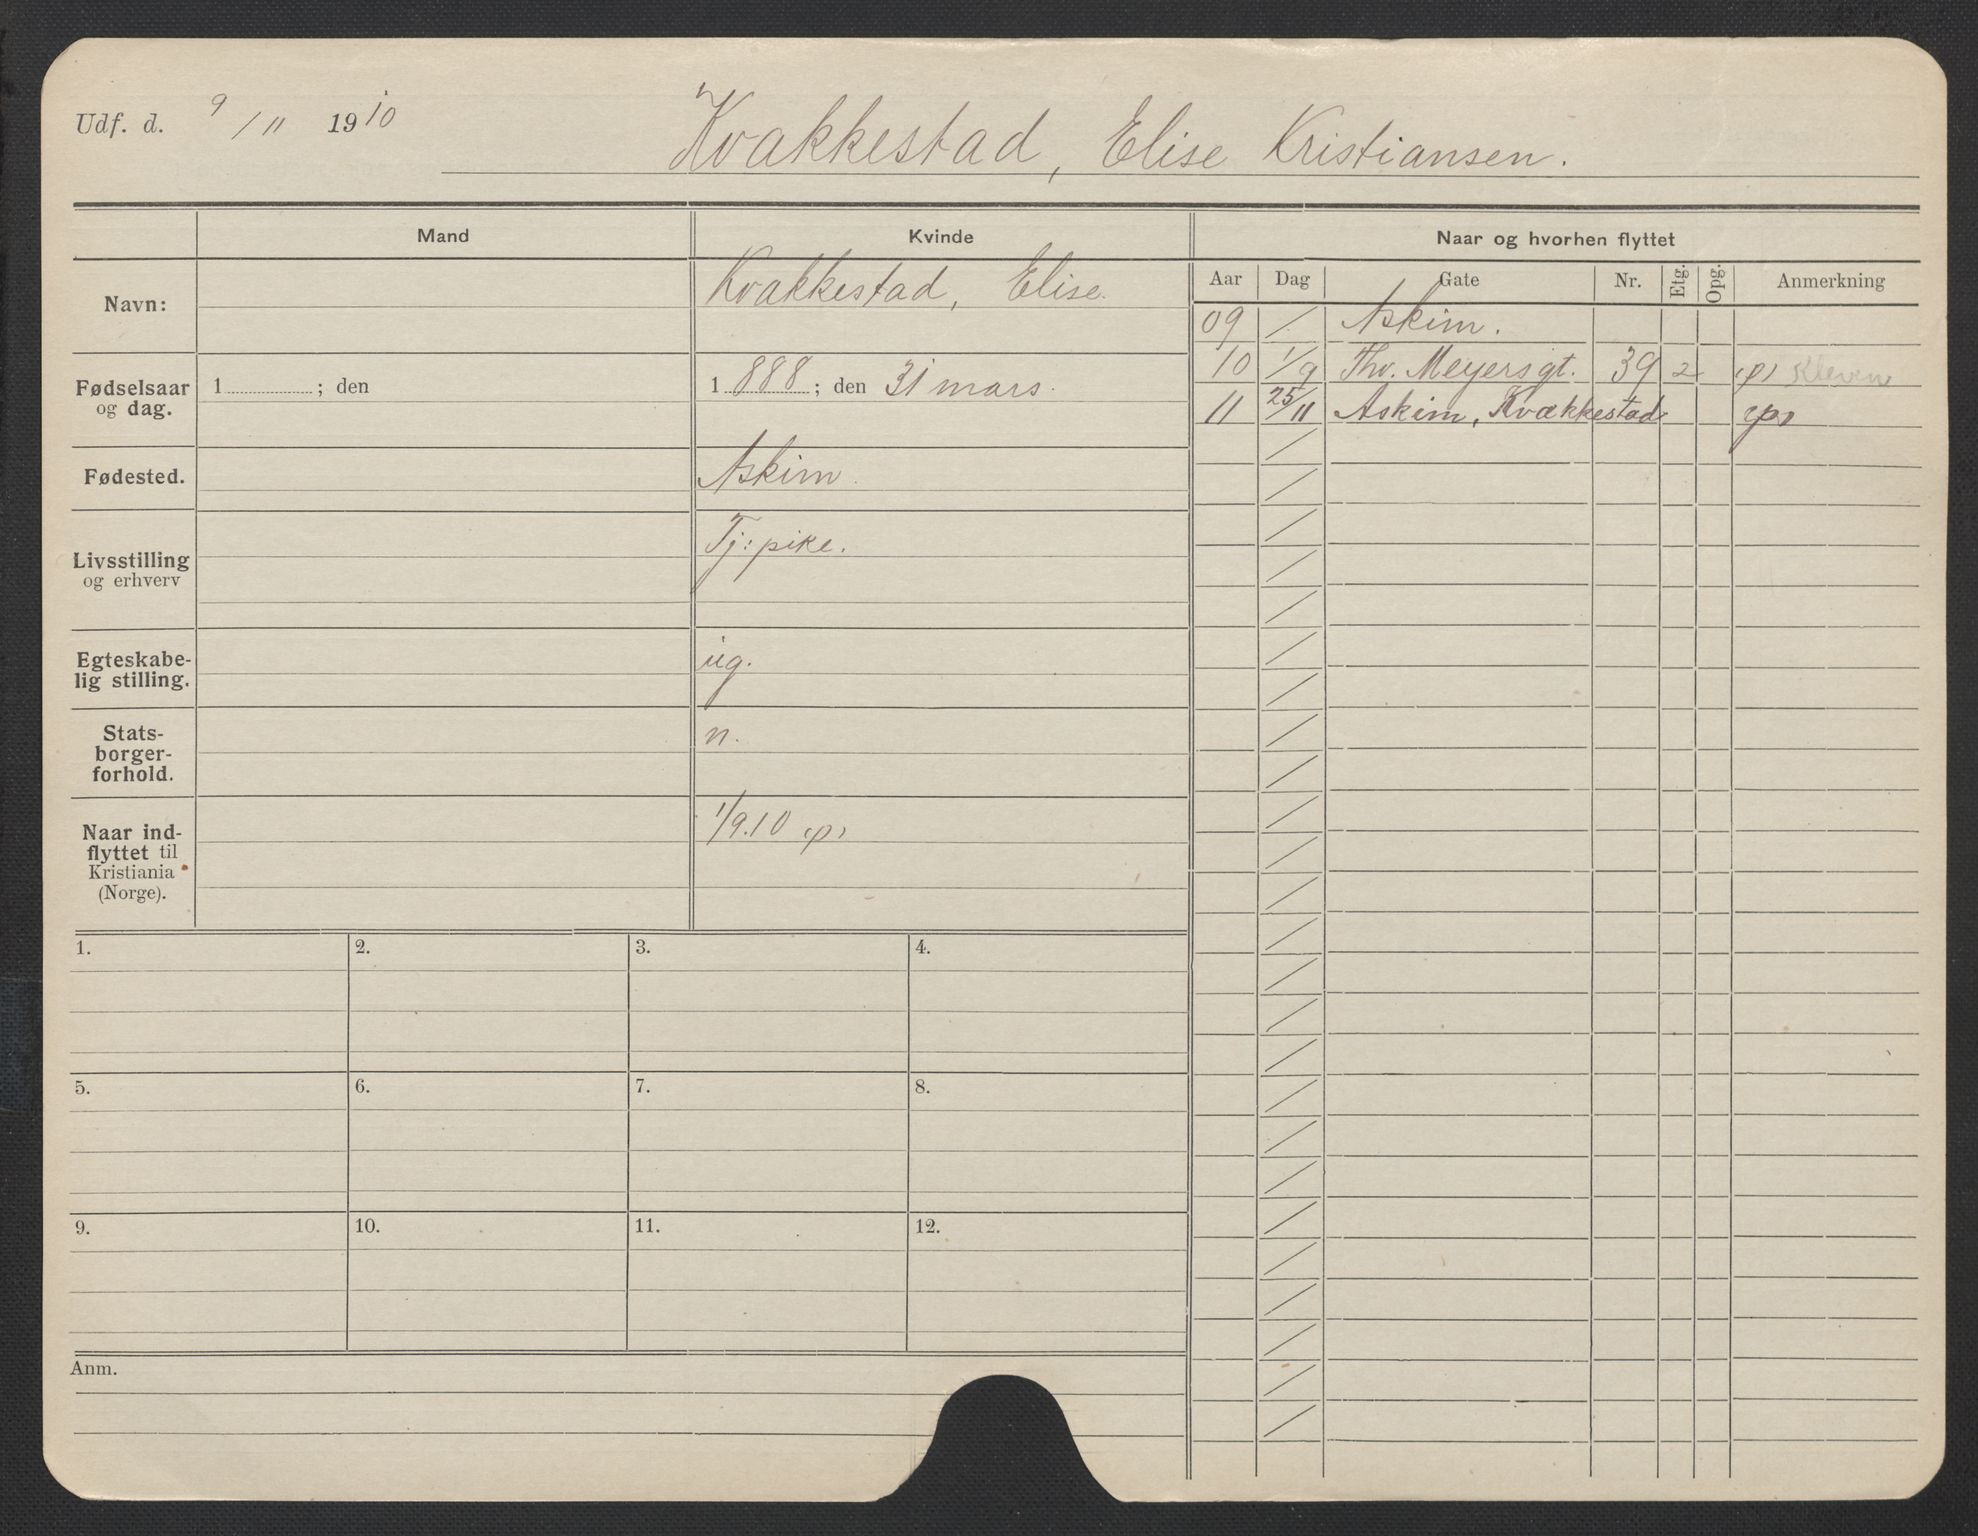 Udf. d. 9/11 1910
Kvakkestad, Elise Kristiansen.
Mand Kvinde Naar og hvorhen flyttet
Aar Dag Gate Nr. Etg. Opg. Anmerkning
Navn: Kvakkestad, Elise.
Fødselsaar og dag. 1 ; den 1888 ; den 31 mars.
Fødested. Askim.
Livsstilling og erhverv Tj: pike.
Egteskabe-
lig stilling. ug.
Stats-
borger-
forhold. n.
Naar ind-
flyttet til
Kristiania
(Norge). 1/9.10 (p)
09 / Askim.
10 1/9 Thv. Meyersgt. 39 2 (p) Kleven
11 25/11 Askim, Kvækkestad (p)
1. 2. 3. 4.
5. 6. 7. 8.
9. 10. 11. 12.
Anm.